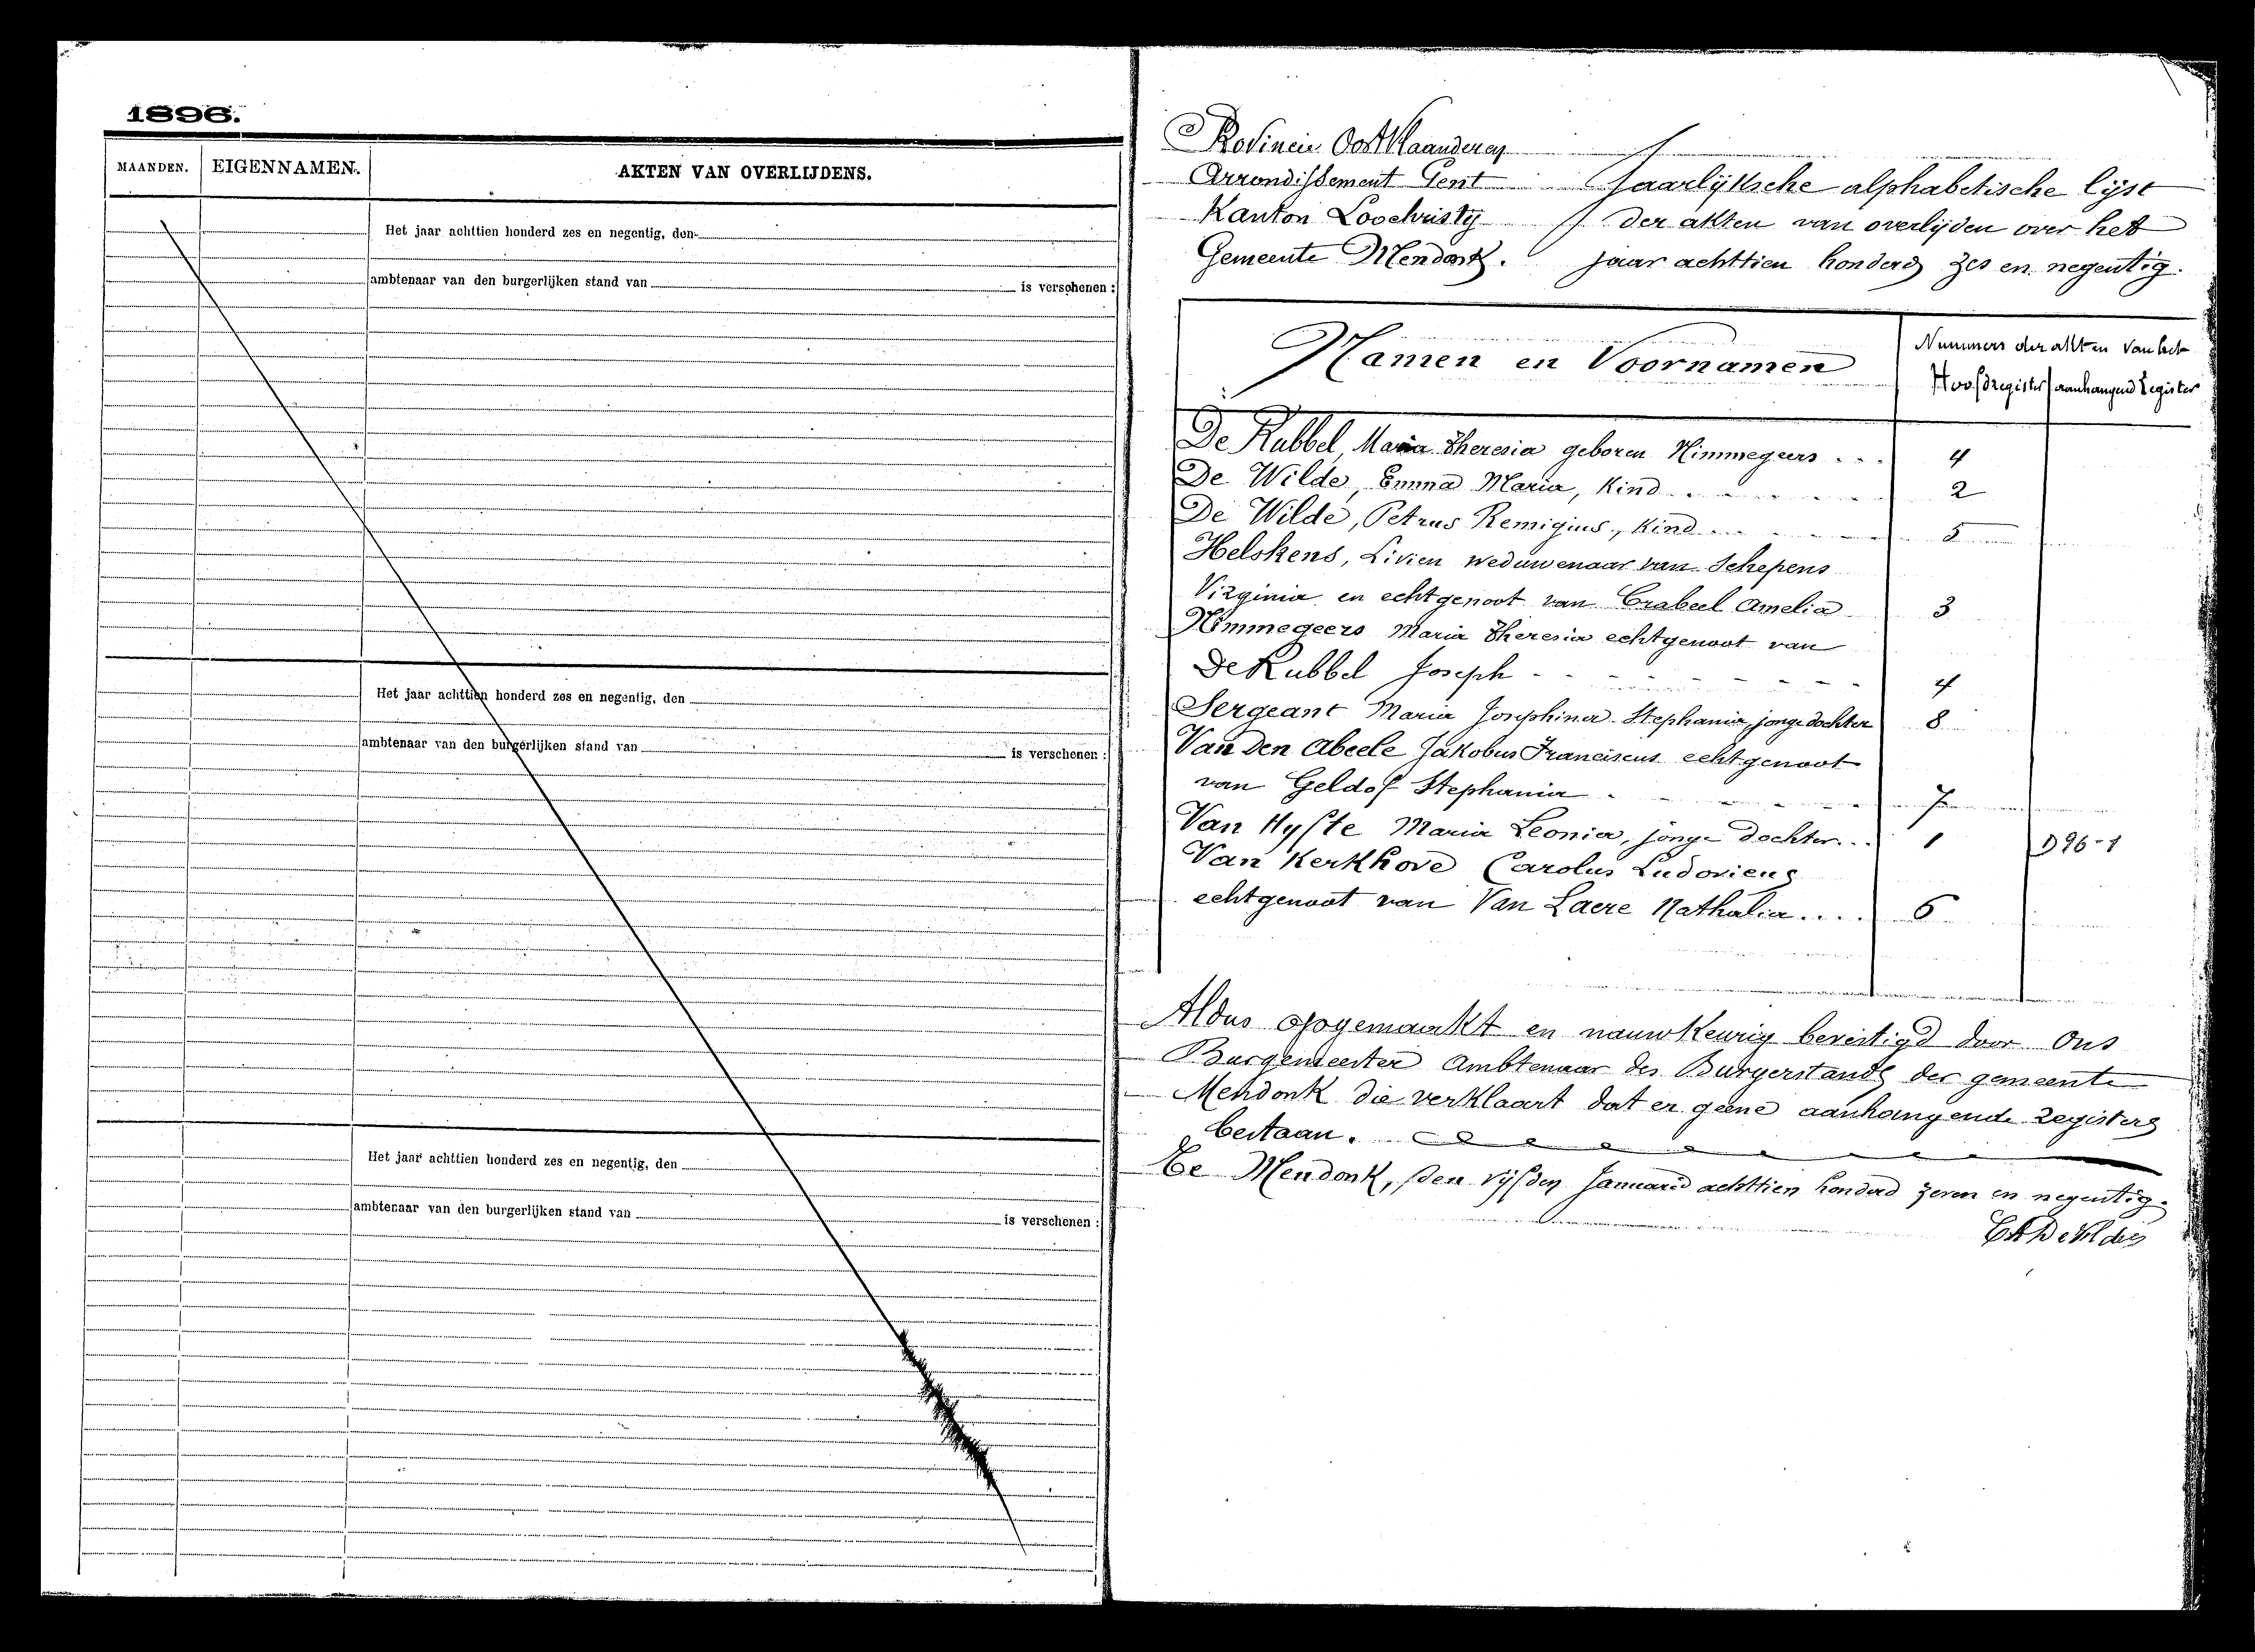 1896.
MAANDEN. EIGENNAMEN. AKTEN VAN OVERLIJDENS.
Het jaar achttien honderd zes en negentig, den
ambtenaar van den burgerlijken stand van is verschenen :
Het jaar achttien honderd zes en negentig, den
ambtenaar van den burgerlijken stand van is verschenen :
Het jaar achttien honderd zes en negentig, den
ambtenaar van den burgerlijken stand van is verschenen :
Provincie Oost Vlaanderen
Arrondissement Gent
Kanton Loochristy
Gemeente Mendonk.
Jaarlyksche alphabetische lijst
der akten van overlijden over het
jaar achttien honderd zes en negentig.
Namen en Voornamen
Nummers der akten van het
Hoofdregister aanhangend Register
De Rubbel, Maria Theresia geboren Nimmegeers . . . 4
De Wilde, Emma Maria, Kind 2
De Wilde, Petrus Remigius, Kind 5
Helskens, Livien weduwenaar van Schepens
Virginia en echtgenoot van Crabeel Amelia 3
Nimmegeers Maria Theresia echtgenoot van
De Rubbel Joseph 4
Sergeant Maria Josephina Stephania, jonge dochter 8
Van den Abeele Jakobus Franciscus echtgenoot
van Geldof Stephania 7
Van Hyfte Maria Leonia, jonge dochter... 1 D96-1
Van Kerkhove Carolus Ludovicus
echtgenoot van Van Laere Nathalia.... 6
Aldus opgemaakt en nauwkeurig bevestigd door Ons
Burgemeester Ambtenaar des Burgerstands der gemeente
Mendonk die verklaart dat er geene aanhangende registers
bestaan.
Te Mendonk, den vijfden Januarij achttien honderd zeven en negentig.